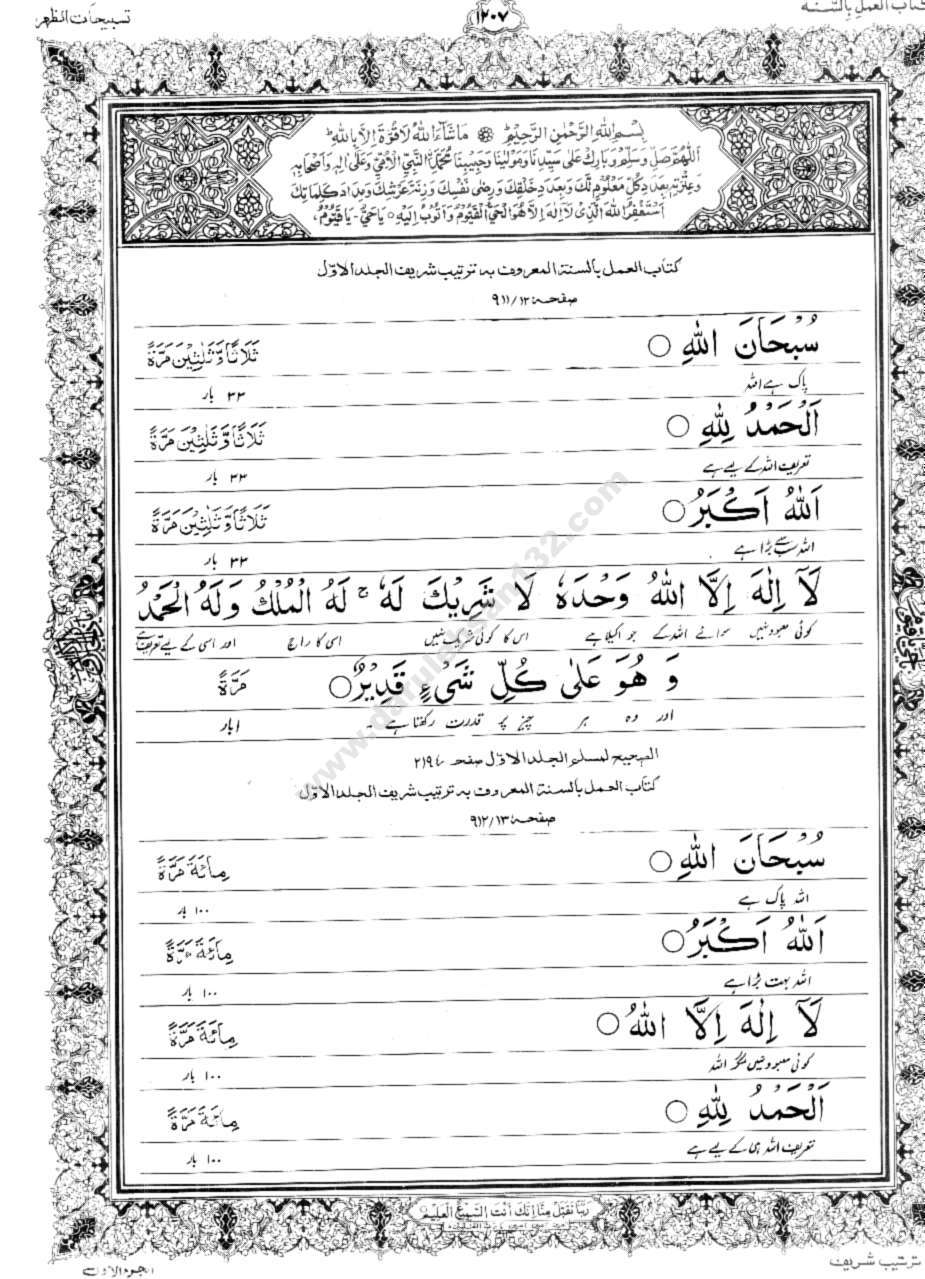 كتاب العمل بالسنة
١٢٠٧
تسبيحات الظهر
بِسْمِ اللهِ الرَّحْمٰنِ الرَّحِيْمِ مَا شَآءَ اللهُ لَا قُوَّةَ اِلَّا بِاللهِ ط
اَللّٰهُمَّ صَلِّ وَسَلِّمْ وَبَارِكْ عَلٰى سَيِّدِنَا وَمَوْلٰينَا وَحَبِيْبِنَا مُحَمَّدِ النَّبِيِّ الْاُمِّيِّ وَعَلٰى اٰلِهٖ وَاَصْحَابِهٖ
وَعِتْرَتِهٖ بِعَدَدِ كُلِّ مَعْلُوْمٍ لَّكَ وَبِعَدَدِ خَلْقِكَ وَرِضٰى نَفْسِكَ وَزِنَةِ عَرْشِكَ وَمِدَادَ كَلِمَاتِكَ
اَسْتَغْفِرُ اللهَ الَّذِىْ لَآ اِلٰهَ اِلَّا هُوَ الْحَىُّ الْقَيُّوْمُ وَاَتُوْبُ اِلَيْهِ ٥ يَا حَىُّ - يَا قَيُّوْمُ
كتاب العمل بالسنة المعروف به ترتيب شريف الجلد الاوّل
صفحه ٩١١/١٢
سُبْحَانَ اللهِ ○ ثَلَاثًا وَّثَلٰثِيْنَ مَرَّةً
پاک ہے اللہ ٣٣ بار
اَلْحَمْدُ لِلّٰهِ ○ ثَلَاثًا وَّثَلٰثِيْنَ مَرَّةً
تعریف اللہ کے لیے ہے ٣٣ بار
اَللّٰهُ اَكْبَرُ ○ ثَلَاثًا وَّثَلٰثِيْنَ مَرَّةً
اللہ سب سے بڑا ہے ٣٣ بار
لَآ اِلٰهَ اِلَّا اللهُ وَحْدَهٗ لَا شَرِيْكَ لَهٗ ج لَهُ الْمُلْكُ وَلَهُ الْحَمْدُ
کوئی معبود نہیں سوائے اللہ کے جو اکیلا ہے اس کا کوئی شریک نہیں اسی کا راج اور اسی کے لیے تعریف ہے
وَ هُوَ عَلٰى كُلِّ شَىْءٍ قَدِيْرٌ ○ مَرَّةً
اور وہ ہر چیز پر قدرت رکھتا ہے - ١ بار
الصحيح لمسلم الجلد الاوّل صفحہ ٢١٩
كتاب العمل بالسنة المعروف به ترتيب شريف الجلد الاوّل
صفحه ٩١٢/١٣
سُبْحَانَ اللهِ ○ مِائَةَ مَرَّةً
اللہ پاک ہے ١٠٠ بار
اَللّٰهُ اَكْبَرُ ○ مِائَةَ مَرَّةً
اللہ بہت بڑا ہے ١٠٠ بار
لَآ اِلٰهَ اِلَّا اللهُ ○ مِائَةَ مَرَّةً
کوئی معبود نہیں مگر اللہ ١٠٠ بار
اَلْحَمْدُ لِلّٰهِ ○ مِائَةَ مَرَّةً
تعریف اللہ ہی کے لیے ہے ١٠٠ بار
رَبَّنَا تَقَبَّلْ مِنَّا اِنَّكَ اَنْتَ السَّمِيْعُ الْعَلِيْمُ
ترتيب شريف
الجزء الاول
www.darulehsan132.com